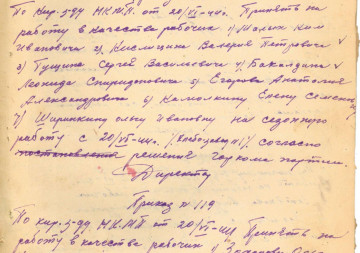 По Кир. з-ду НКЖП. от 20/VI-44г. Принять на
работу в качестве рабочих 1) Малых Ким
Ивановича 2) Кислицина Валерия Петровича
3) Тушина Сергей Васильевич 4) Бакалдина
Леонида Спиридоновича 5) Егорова Анатолия
Александровича 6) Камолкину Елену Семен
7) Ширинкину Ольгу Ивановну на сезонную
работу с 20/VI-44г. /Хлебозавод №1/ согласно
постановления решения горкома партии.
Директор
Приказ № 119
По кир. з-ду НКЖП от 20/VI-44г Принять на
работу в качестве рабочих 1)